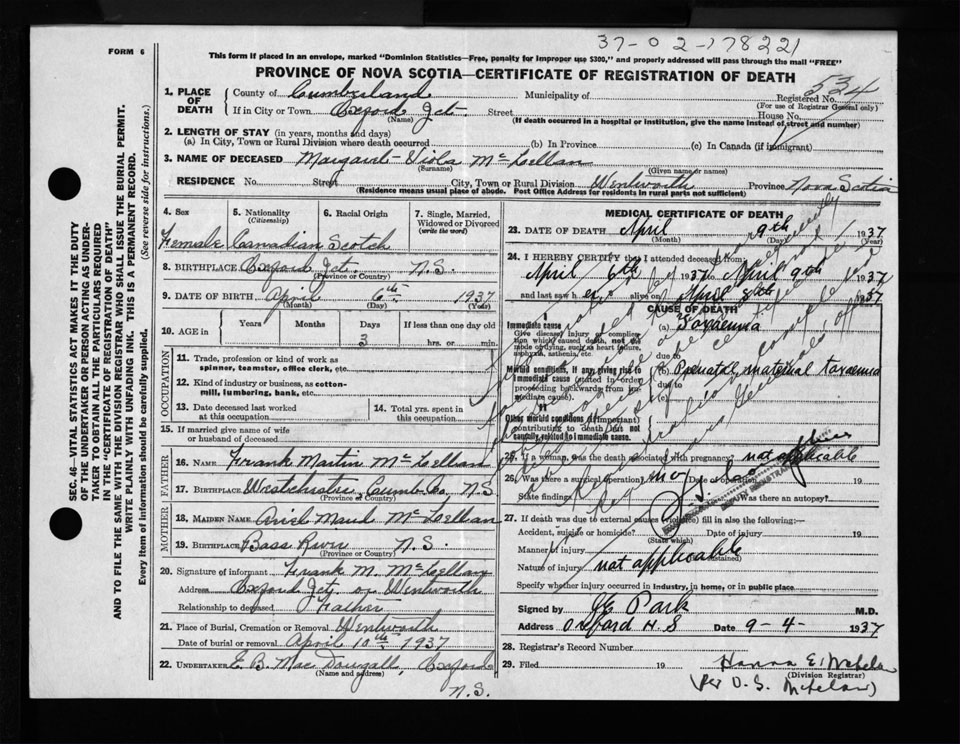 37-02-178221
FORM 6
This form if placed in an envelope, marked "Dominion Statistics—Free, penalty for improper use $300," and properly addressed will pass through the mail "FREE"
PROVINCE OF NOVA SCOTIA—CERTIFICATE OF REGISTRATION OF DEATH
534
SEC. 46—VITAL STATISTICS ACT MAKES IT THE DUTY
OF THE UNDERTAKER OR PERSON ACTING AS UNDER-
TAKER TO OBTAIN ALL THE PARTICULARS REQUIRED
IN THE "CERTIFICATE OF REGISTRATION OF DEATH"
AND TO FILE THE SAME WITH THE DIVISION REGISTRAR WHO SHALL ISSUE THE BURIAL PERMIT.
WRITE PLAINLY WITH UNFADING INK. THIS IS A PERMANENT RECORD.
Every item of information should be carefully supplied. (See reverse side for instructions.)
1. PLACE OF DEATH County of Cumberland Municipality of Registered No.
(For use of Registrar General only)
If in City or Town Oxford Jct. Street House No.
(Name) (If death occurred in a hospital or institution, give the name instead of street and number)
2. LENGTH OF STAY (in years, months and days)
(a) In City, Town or Rural Division where death occurred (b) In Province (c) In Canada (if immigrant)
3. NAME OF DECEASED Margaret-Viola McLellan
(Surname) (Given name or names)
RESIDENCE No. Street City, Town or Rural Division Wentworth Province Nova Scotia
(Residence means usual place of abode. Post Office Address for residents in rural parts not sufficient)
4. Sex 5. Nationality 6. Racial Origin 7. Single, Married,
(Citizenship) Widowed or Divorced
(write the word)
Female Canadian Scotch
8. BIRTHPLACE Oxford Jct. N.S.
(Province or Country)
9. DATE OF BIRTH April 6th 1937
(Month) (Day) (Year)
10. AGE in Years Months Days If less than one day
3 hrs. or min.
OCCUPATION
11. Trade, profession or kind of work as
spinner, teamster, office clerk, etc.
12. Kind of industry or business, as cotton-
mill, lumbering, bank, etc.
13. Date deceased last worked
at this occupation
14. Total yrs. spent in
this occupation
15. If married give name of wife
or husband of deceased
FATHER
16. NAME Frank Martin McLellan
17. BIRTHPLACE Westchester, Cumb. Co. N.S
(Province or Country)
MOTHER
18. MAIDEN NAME Maud McLellan
19. BIRTHPLACE Bass River N.S.
(Province or Country)
20. Signature of informant Frank M. McLellan
Address Oxford Jct. or Wentworth
Relationship to deceased Father
21. Place of Burial, Cremation or Removal Wentworth
Date of burial or removal April 10th 1937
22. UNDERTAKER E. B. MacDougall, Oxford
(Name and address)
N.S.
MEDICAL CERTIFICATE OF DEATH
23. DATE OF DEATH April 9th 1937
(Month) (Day) (Year)
24. I HEREBY CERTIFY that I attended deceased from:
April 6th 1937 to April 9th 1937
and last saw her alive on April 8th 1937
CAUSE OF DEATH
I
Immediate cause (a) Toxaemia
Give disease, injury or complica-
tion which caused death, not the
mode of dying, such as heart failure,
asphyxia, asthenia, etc. due to
Morbid conditions, if any, giving rise to (b) Prenatal, maternal toxaemia
immediate cause (stated in order due to
proceeding backwards from im-
mediate cause). (c)
II
Other morbid conditions (if important)
contributing to death but not
causally related to immediate cause.
25. If a woman, was the death associated with pregnancy? not applicable
26. Was there a surgical operation? no Date of operation 19
State findings Was there an autopsy?
27. If death was due to external causes (violence) fill in also the following:—
Accident, suicide or homicide? Date of injury 19
(State which)
Manner of injury
Nature of injury not applicable
Specify whether injury occurred in industry, in home, or in public place
Signed by J E Park M.D.
Address Oxford N.S Date 9-4- 1937
28. Registrar's Record Number
29. Filed 19 Hanna E.
(Division Registrar)
(Per D. S.